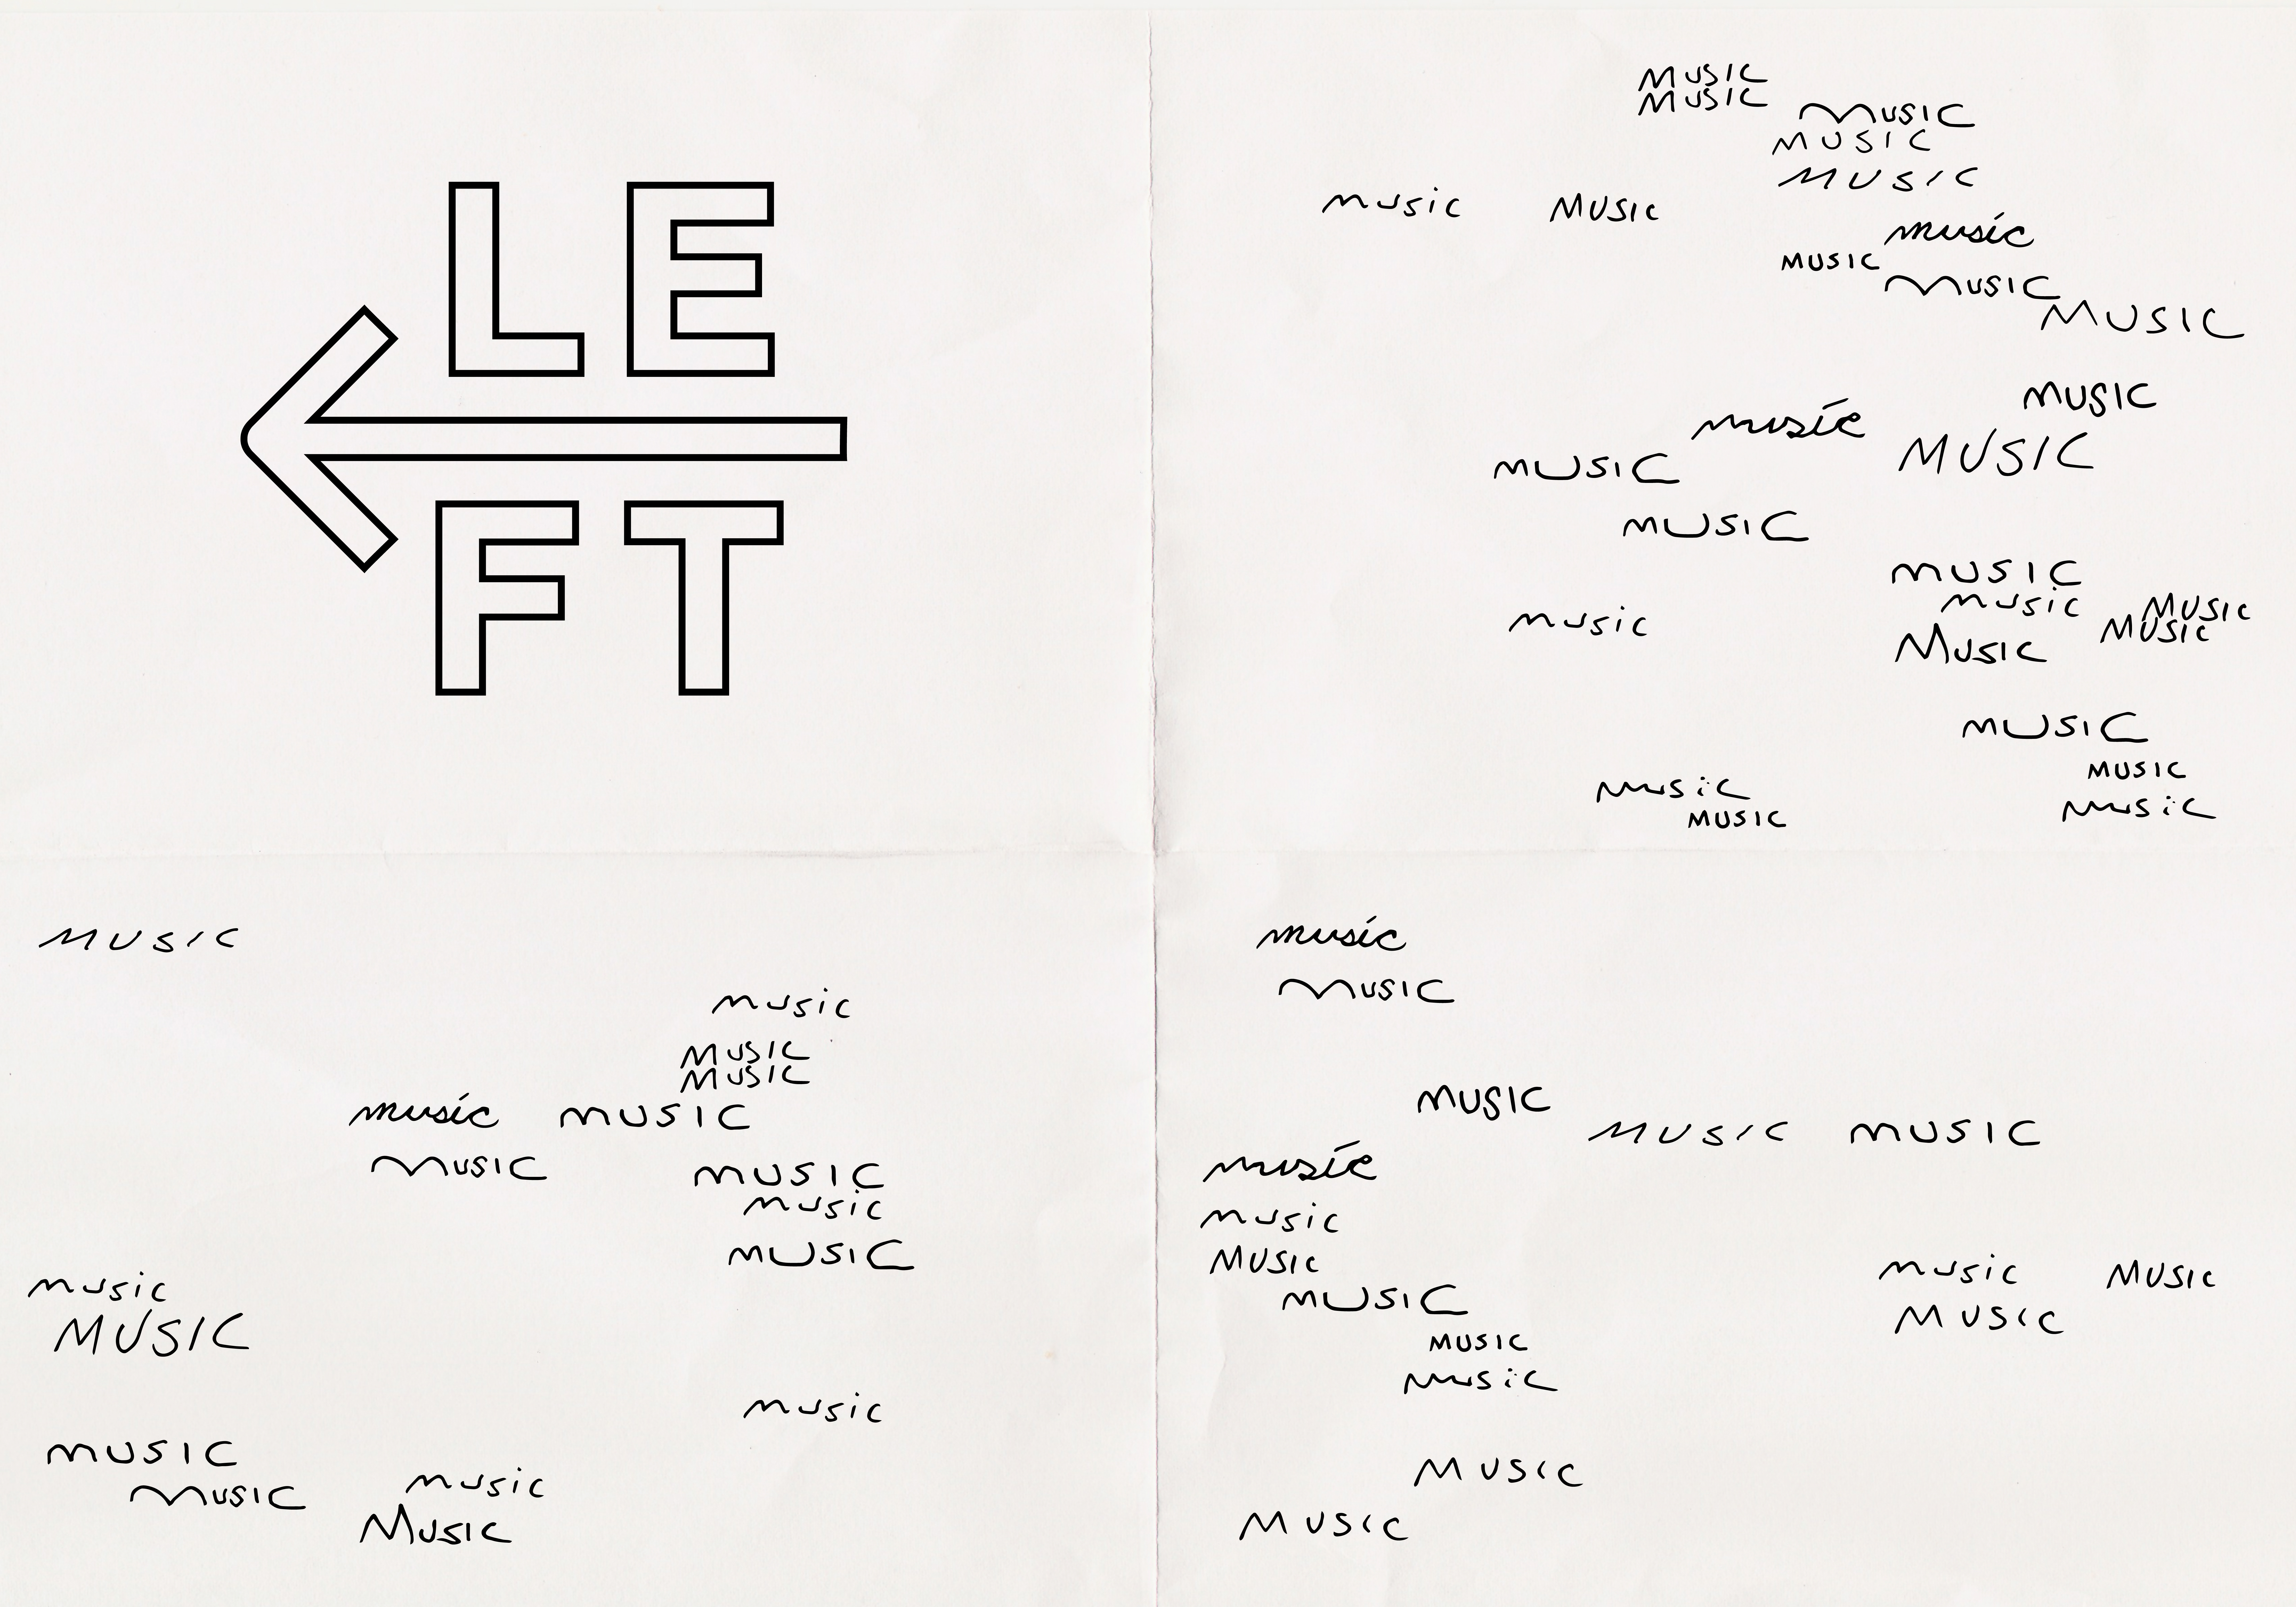 LE
FT
MUSIC
MUSIC
MUSIC
MUSIC
MUSIC
music MUSIC
music
MUSIC
MUSIC
MUSIC
MUSIC
music
MUSIC
MUSIC
MUSIC
MUSIC
music
MUSIC
music
MUSIC
MUSIC
MUSIC
MUSIC
music
music
MUSIC
MUSIC
music
MUSIC
MUSIC
music MUSIC
MUSIC
MUSIC
music
MUSIC
music
MUSIC
music
MUSIC
music
MUSIC
MUSIC
music
MUSIC
MUSIC
MUSIC MUSIC
music
music
MUSIC
music MUSIC
MUSIC
MUSIC
MUSIC
music
MUSIC
MUSIC